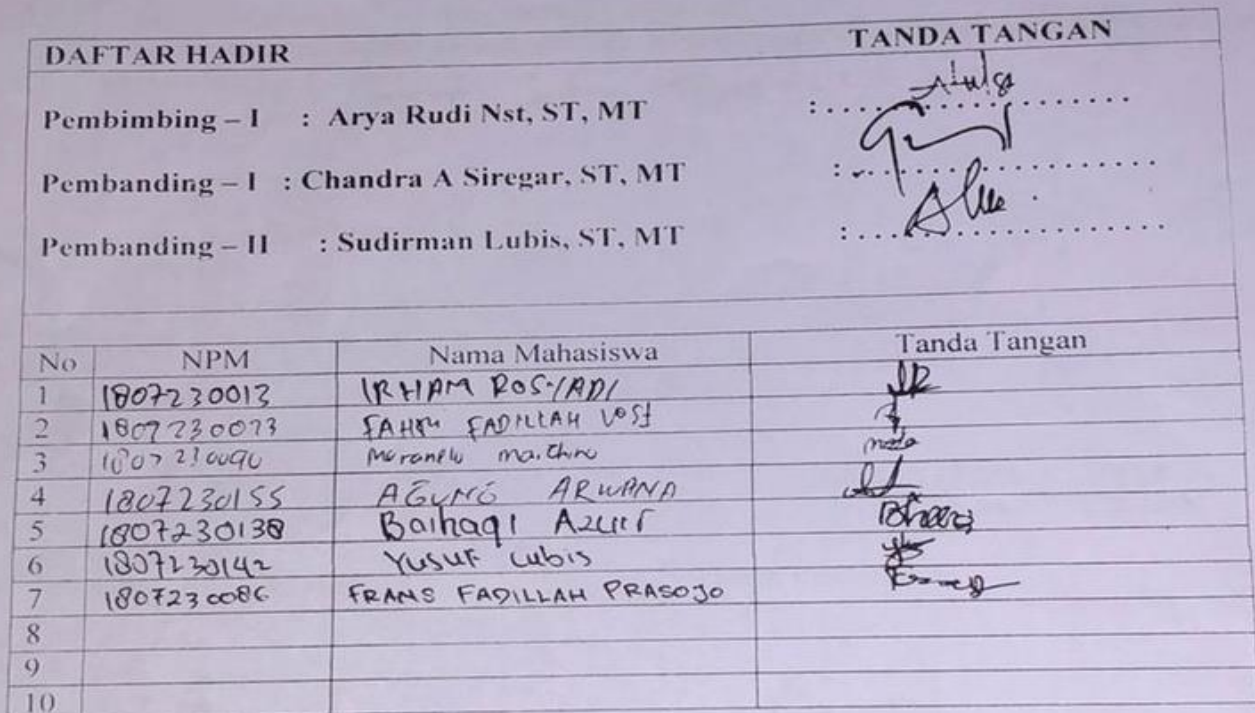 DAFTAR HADIR TANDA TANGAN
Pembimbing – I : Arya Rudi Nst, ST, MT :..............................
Pembanding – I : Chandra A Siregar, ST, MT :..............................
Pembanding – II : Sudirman Lubis, ST, MT :..............................
No NPM Nama Mahasiswa Tanda Tangan
1 1807230013 IRHAM ROSYADI
2 1807230073 FAHMI FADILLAH
3
4 1807230155 AGUNG ARWANA
5 1807230138 Baihaqi
6 1807230142 Yusuf Lubis
7 1807230086 FRANS FADILLAH PRASOJO
8
9
10